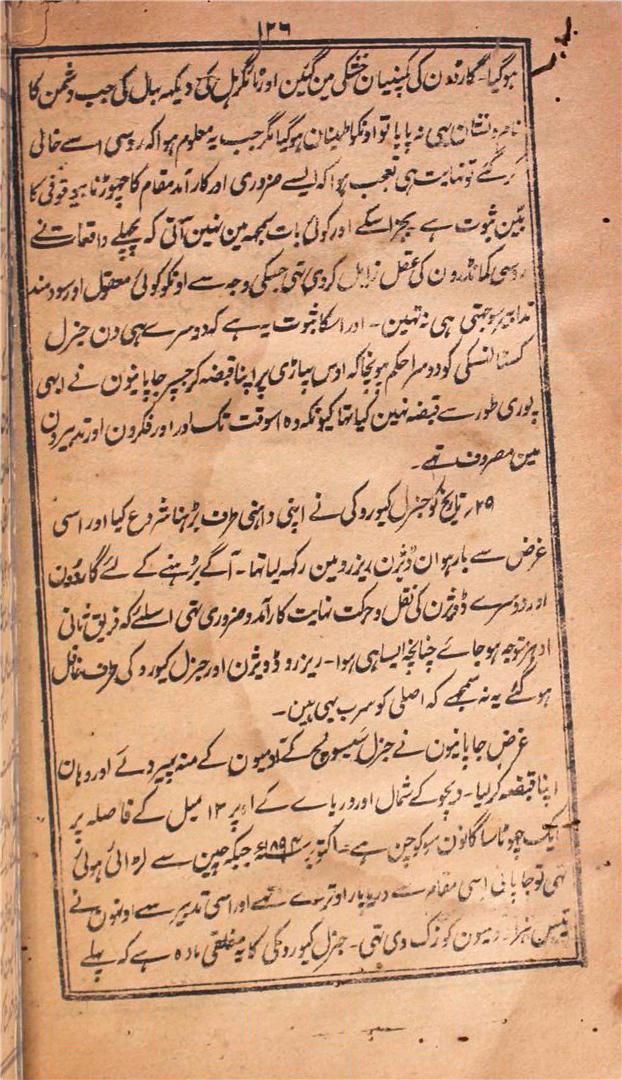 ۱۲۶
ہوگیا۔ گارڈون کی کمپنیان خشکی مین گئین اور ٹانگرہل کی دیکہہ بہال کی جب دشمن کا
نام و نشان بہی نہ پایا تو اونکو اطمینان ہوگیا مگر جب یہ معلوم ہوا کہ روسی اسے خالی
کر گئے تو نہایت ہی تعجب ہوا کہ ایسے ضروری اور کارآمد مقام کا چہوڑنا بیوقوفی کا
بین ثبوت ہے بجز اسکے اور کوئی بات سمجہہ مین نہین آتی کہ پچہلے واقعات نے
روسی کمانڈرون کی عقل زایل کر دی تہی جسکی وجہ سے اونکو کوئی معقول اور سودمند
تدابیر سوجہتی ہی نہ تہین۔ اور اسکا ثبوت یہ ہے کہ دوسرے ہی دن جنرل
کستالنسکی کو دوسرا حکم پہونچا کہ اوس پہاڑی پر اپنا قبضہ کر جسپر جاپانیون نے ابہی
پوری طور سے قبضہ نہین کیا تہا کیونکہ وہ اسوقت تک اور اور فکرون اور تدبیرون
مین مصروف تہے۔
۲۹؍ تاریخ کو جنرل کیوروکی نے اپنی داہنی طرف بڑہنا شروع کیا اور اسی
غرض سے بارہوان ڈیژن ریزرو مین رکہہ لیا تہا۔ آگے بڑہنے کے لئے گارڈون
اور دوسرے ڈویژن کی نقل و حرکت نہایت کارآمد و ضروری تہی اسلئے کہ فریق ثانی
ادہر متوجہ ہو جائے چنانچہ ایسا ہی ہوا۔ ریزرو ڈویژن اور جنرل کیوروکی طرف غافل
ہو گئے یہ نہ سمجہے کہ اصلی کو سرب یہی ہین۔
غرض جاپانیون نے جنرل سیسولچ کے آدمیون کے منہ پہیر دئے اور وہان
اپنا قبضہ کر لیا۔ ویجو کے شمال اور دریا کے اوپر ۱۳ میل کے فاصلہ پر
ایک چہوٹا سا گانون سوکوچن ہے۔ اکتوبر ۱۸۹۴ء جبکہ چین سے لڑائی ہوئی
تہی تو جاپانی اسی مقام سے دریا پار اوترے تہے اور اسی تدبیر سے اونہون نے
کو زک دی تہی۔ جنرل کیوروکی کا یہ خلقی مادہ ہے کہ پہلے